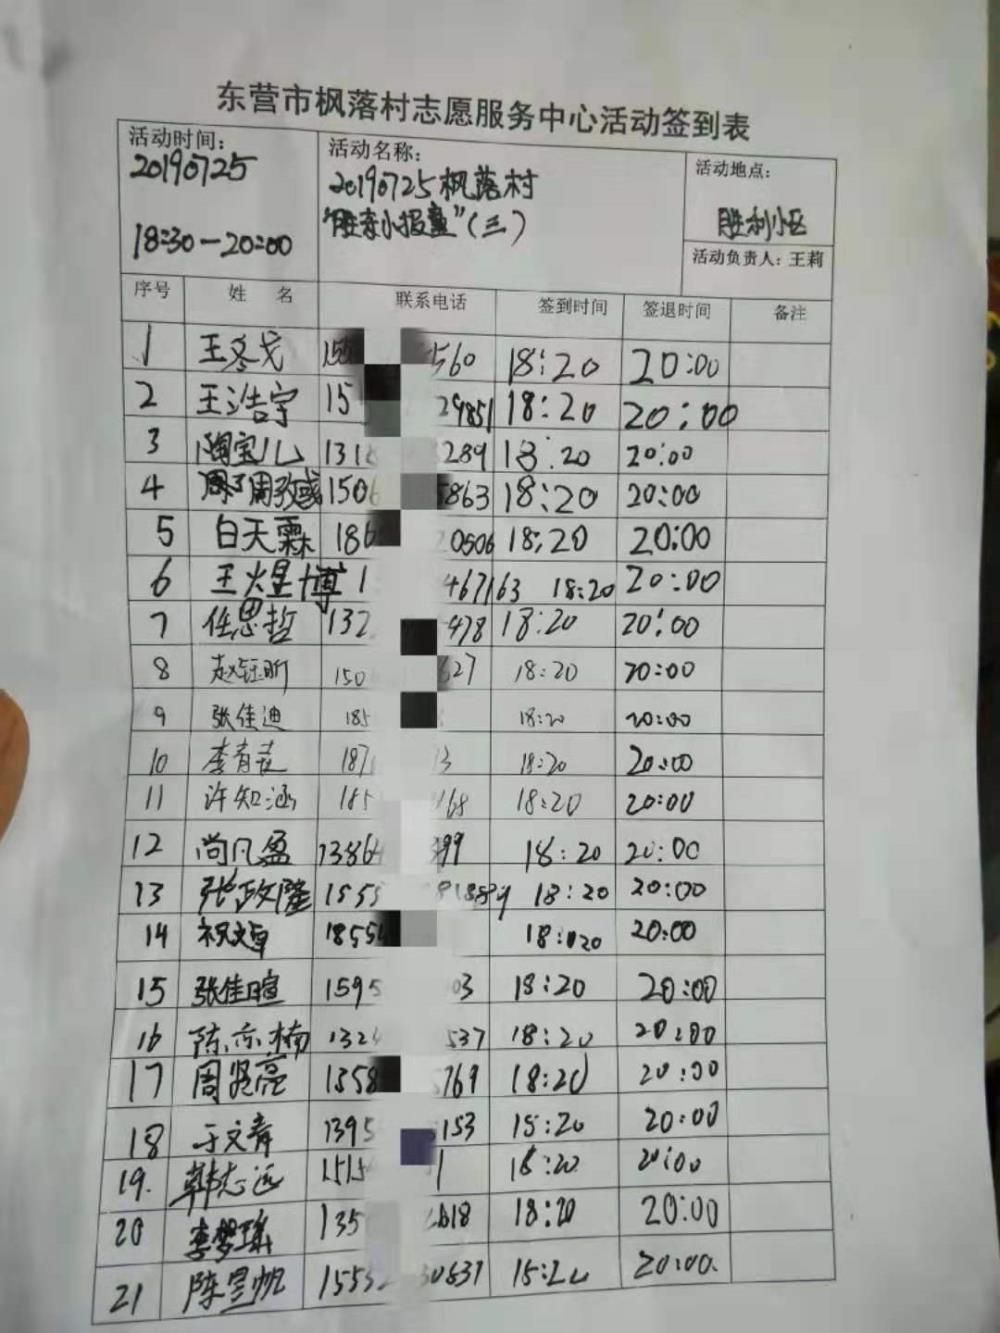 东营市枫落村志愿服务中心活动签到表
活动时间：
20190725
18:30—20:00
活动名称：
20190725枫落村
"胜东小报童"（三）
活动地点：
胜利小区
活动负责人：王莉
序号 姓 名 联系电话 签到时间 签退时间 备注
1 王冬戈 155 560 18:20 20:00
2 王浩宇 15 29851 18:20 20:00
3 陶宝儿 131 289 18:20 20:00
4 150 863 18:20 20:00
5 白天霖 186 0506 18:20 20:00
6 王煜博 1 467163 18:20 20:00
7 任思哲 132 478 18:20 20:00
8 赵钰昕 150 627 18:20 20:00
9 张佳迪 185 18:20 20:00
10 187 13 18:20 20:00
11 许知涵 185 168 18:20 20:00
12 尚凡盈 13864 399 18:20 20:00
13 张政隆 1555 18:20 20:00
14 祝文卓 1855 18:20 20:00
15 张佳暄 1595 03 18:20 20:00
16 陈亦楠 132 537 18:20 20:00
17 周贤亮 1358 769 18:20 20:00
18 于文青 1395 153 18:20 20:00
19. 韩志远 1515 1 18:20 20:00
20 李梦瑶 135 618 18:20 20:00
21 陈昱帆 1553 30637 20:00.